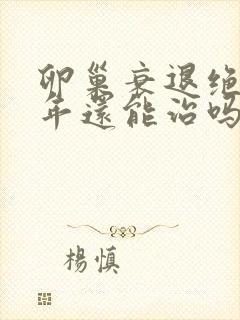 卵巢衰退绝
年還能治吗
楊慎